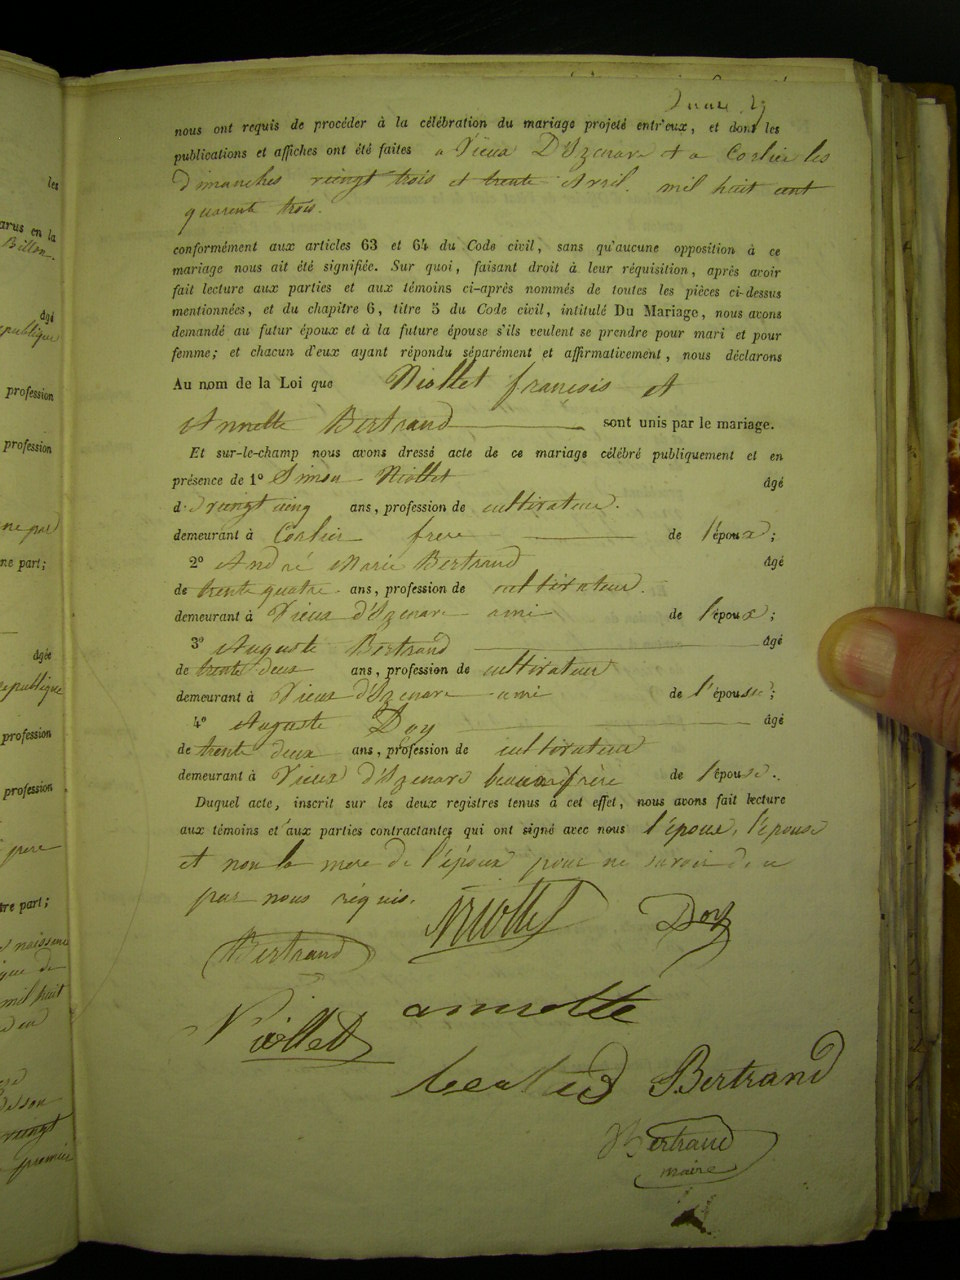 les
arus en la
Billon.
âgé
république
profession
profession
ne par
ne part;
âgée
république
profession
profession
pere
tre part;
naissance
que de
mil huit
vingt
premier
nous ont requis de procéder à la célébration du mariage projeté entr'eux, et dont les
publications et affiches ont été faites a Vieux D'Izenave et a Corlier les
Dimanches vingt trois et trente Avril. mil huit cent
quarente trois.
conformément aux articles 63 et 64 du Code civil, sans qu'aucune opposition à ce
mariage nous ait été signifiée. Sur quoi, faisant droit à leur réquisition, après avoir
fait lecture aux parties et aux témoins ci-après nommés de toutes les pièces ci-dessus
mentionnées, et du chapitre 6, titre 5 du Code civil, intitulé Du Mariage, nous avons
demandé au futur époux et à la future épouse s'ils veulent se prendre pour mari et pour
femme; et chacun d'eux ayant répondu séparément et affirmativement, nous déclarons
Au nom de la Loi que Niollet francois et
Annette Bertrand sont unis par le mariage.
Et sur-le-champ nous avons dressé acte de ce mariage célébré publiquement et en
présence de 1° Simon Niollet âgé
de vingt cinq ans, profession de cultivateur.
demeurant à Corlier frere de l'époux;
2° André Marie Bertrand âgé
de trente quatre ans, profession de cultivateur.
demeurant à Vieux d'Izenave ami de l'époux;
3° Auguste Bertrand âgé
de trente deux ans, profession de cultivateur
demeurant à Vieux d'Izenave ami de l'épouse;
4° Auguste Doy âgé
de trente deux ans, profession de cultivateur
demeurant à Vieux d'Izenave beau frère de l'épouse.
Duquel acte, inscrit sur les deux registres tenus à cet effet, nous avons fait lecture
aux témoins et aux parties contractantes qui ont signé avec nous l'époux, l'épouse
et non la mere de l'époux pour ne savoir de ce
par nous réquis.
Niollet Doy
Bertrand
Niollet annette
Bertrand
Bertrand
maire